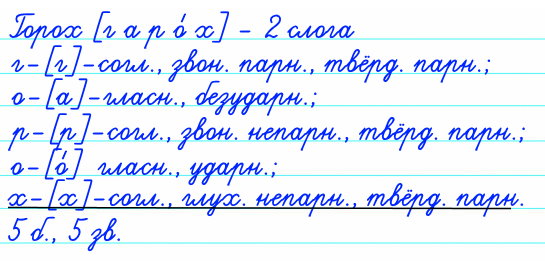 Горох [г а р о́ х] – 2 слога
г–[г]–согл., звон. парн., твёрд. парн.;
о–[а]–гласн., безударн.;
р–[р]–согл., звон. непарн., твёрд. парн.;
о–[о́] гласн., ударн.;
х–[х]–согл., глух. непарн., твёрд. парн.
5 б., 5 зв.